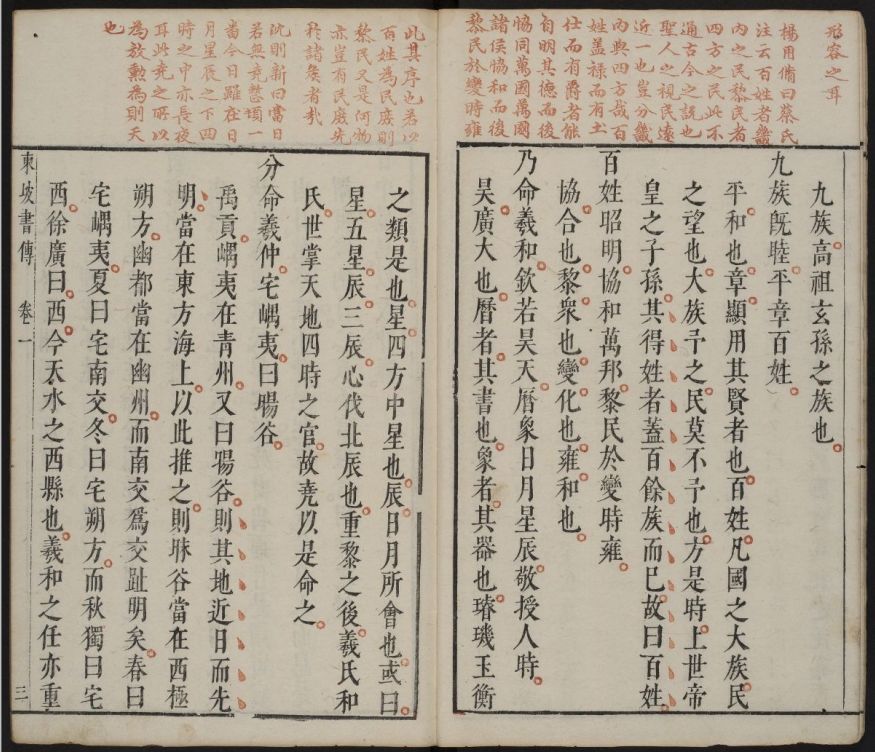 形容之耳
楊用脩曰蔡氏
注云百姓者畿
內之民黎民者
四方之民此不
通古今之說也
聖人之視民遠
近一也豈分畿
內與四方哉百
姓蓋祿而有土
仕而有爵者能
自明其德而後
協同萬國萬國
諸侯協和而後
黎民於變時雍
九族高祖玄孫之族也
九族旣睦平章百姓
平和也章顯用其賢者也百姓凡國之大族民
之望也大族予之民莫不予也方是時上世帝
皇之子孫其得姓者蓋百餘族而已故曰百姓
百姓昭明協和萬邦黎民於變時雍
協合也黎衆也變化也雍和也
乃命羲和欽若昊天曆象日月星辰敬授人時
昊廣大也曆者其書也象者其器也璿璣玉衡
此其序也若以
百姓為民庶則
黎民又是何物
亦豈有民庶先
於諸矦者哉
沈則新曰當日
若無堯憋頊一
畨今日雖在日
月星辰之下四
時之中亦長夜
耳此堯之所以
為放勳為則天
也
之類是也星四方中星也辰日月所會也或曰
星五星辰三辰心伐北辰也重黎之後羲氏和
氏世掌天地四時之官故堯以是命之
分命羲仲宅嵎夷曰暘谷
禹貢嵎夷在青州又曰暘谷則其地近日而先
明當在東方海上以此推之則昧谷當在西極
朔方幽都當在幽州而南交爲交趾明矣春曰
宅嵎夷夏曰宅南交冬曰宅朔方而秋獨曰宅
西徐廣曰西今天水之西縣也羲和之任亦重
東坡書傳 卷一 三